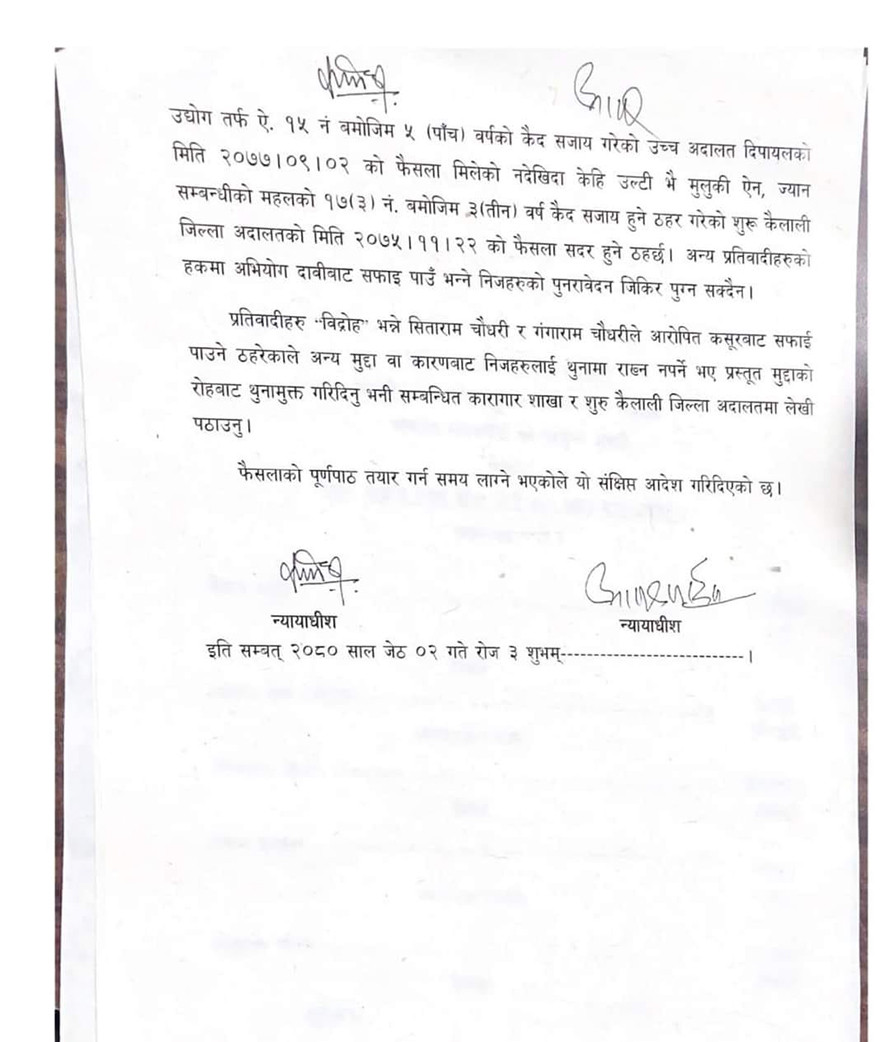 उद्योग तर्फ ऐ. १५ नं बमोजिम ५ (पाँच) वर्षको कैद सजाय गरेको उच्च अदालत दिपायलको
मिति २०७७।०९।०२ को फैसला मिलेको नदेखिदा केहि उल्टी भै मुलुकी ऐन, ज्यान
सम्बन्धीको महलको १७(३) नं. बमोजिम ३(तीन) वर्ष कैद सजाय हुने ठहर गरेको शुरू कैलाली
जिल्ला अदालतको मिति २०७५।११।२२ को फैसला सदर हुने ठहर्छ। अन्य प्रतिवादीहरुको
हकमा अभियोग दावीबाट सफाइ पाउँ भन्ने निजहरुको पुनरावेदन जिकिर पुग्न सक्दैन।
प्रतिवादीहरु "विद्रोह" भन्ने सिताराम चौधरी र गंगाराम चौधरीले आरोपित कसूरबाट सफाई
पाउने ठहरेकाले अन्य मुद्दा वा कारणबाट निजहरुलाई थुनामा राख्न नपर्ने भए प्रस्तूत मुद्दाको
रोहबाट थुनामुक्त गरिदिनु भनी सम्बन्धित कारागार शाखा र शुरु कैलाली जिल्ला अदालतमा लेखी
पठाउनु।
फैसलाको पूर्णपाठ तयार गर्न समय लाग्ने भएकोले यो संक्षिप्त आदेश गरिदिएको छ।
न्यायाधीश
न्यायाधीश
इति सम्बत् २०८० साल जेठ ०२ गते रोज ३ शुभम्---------------------------।